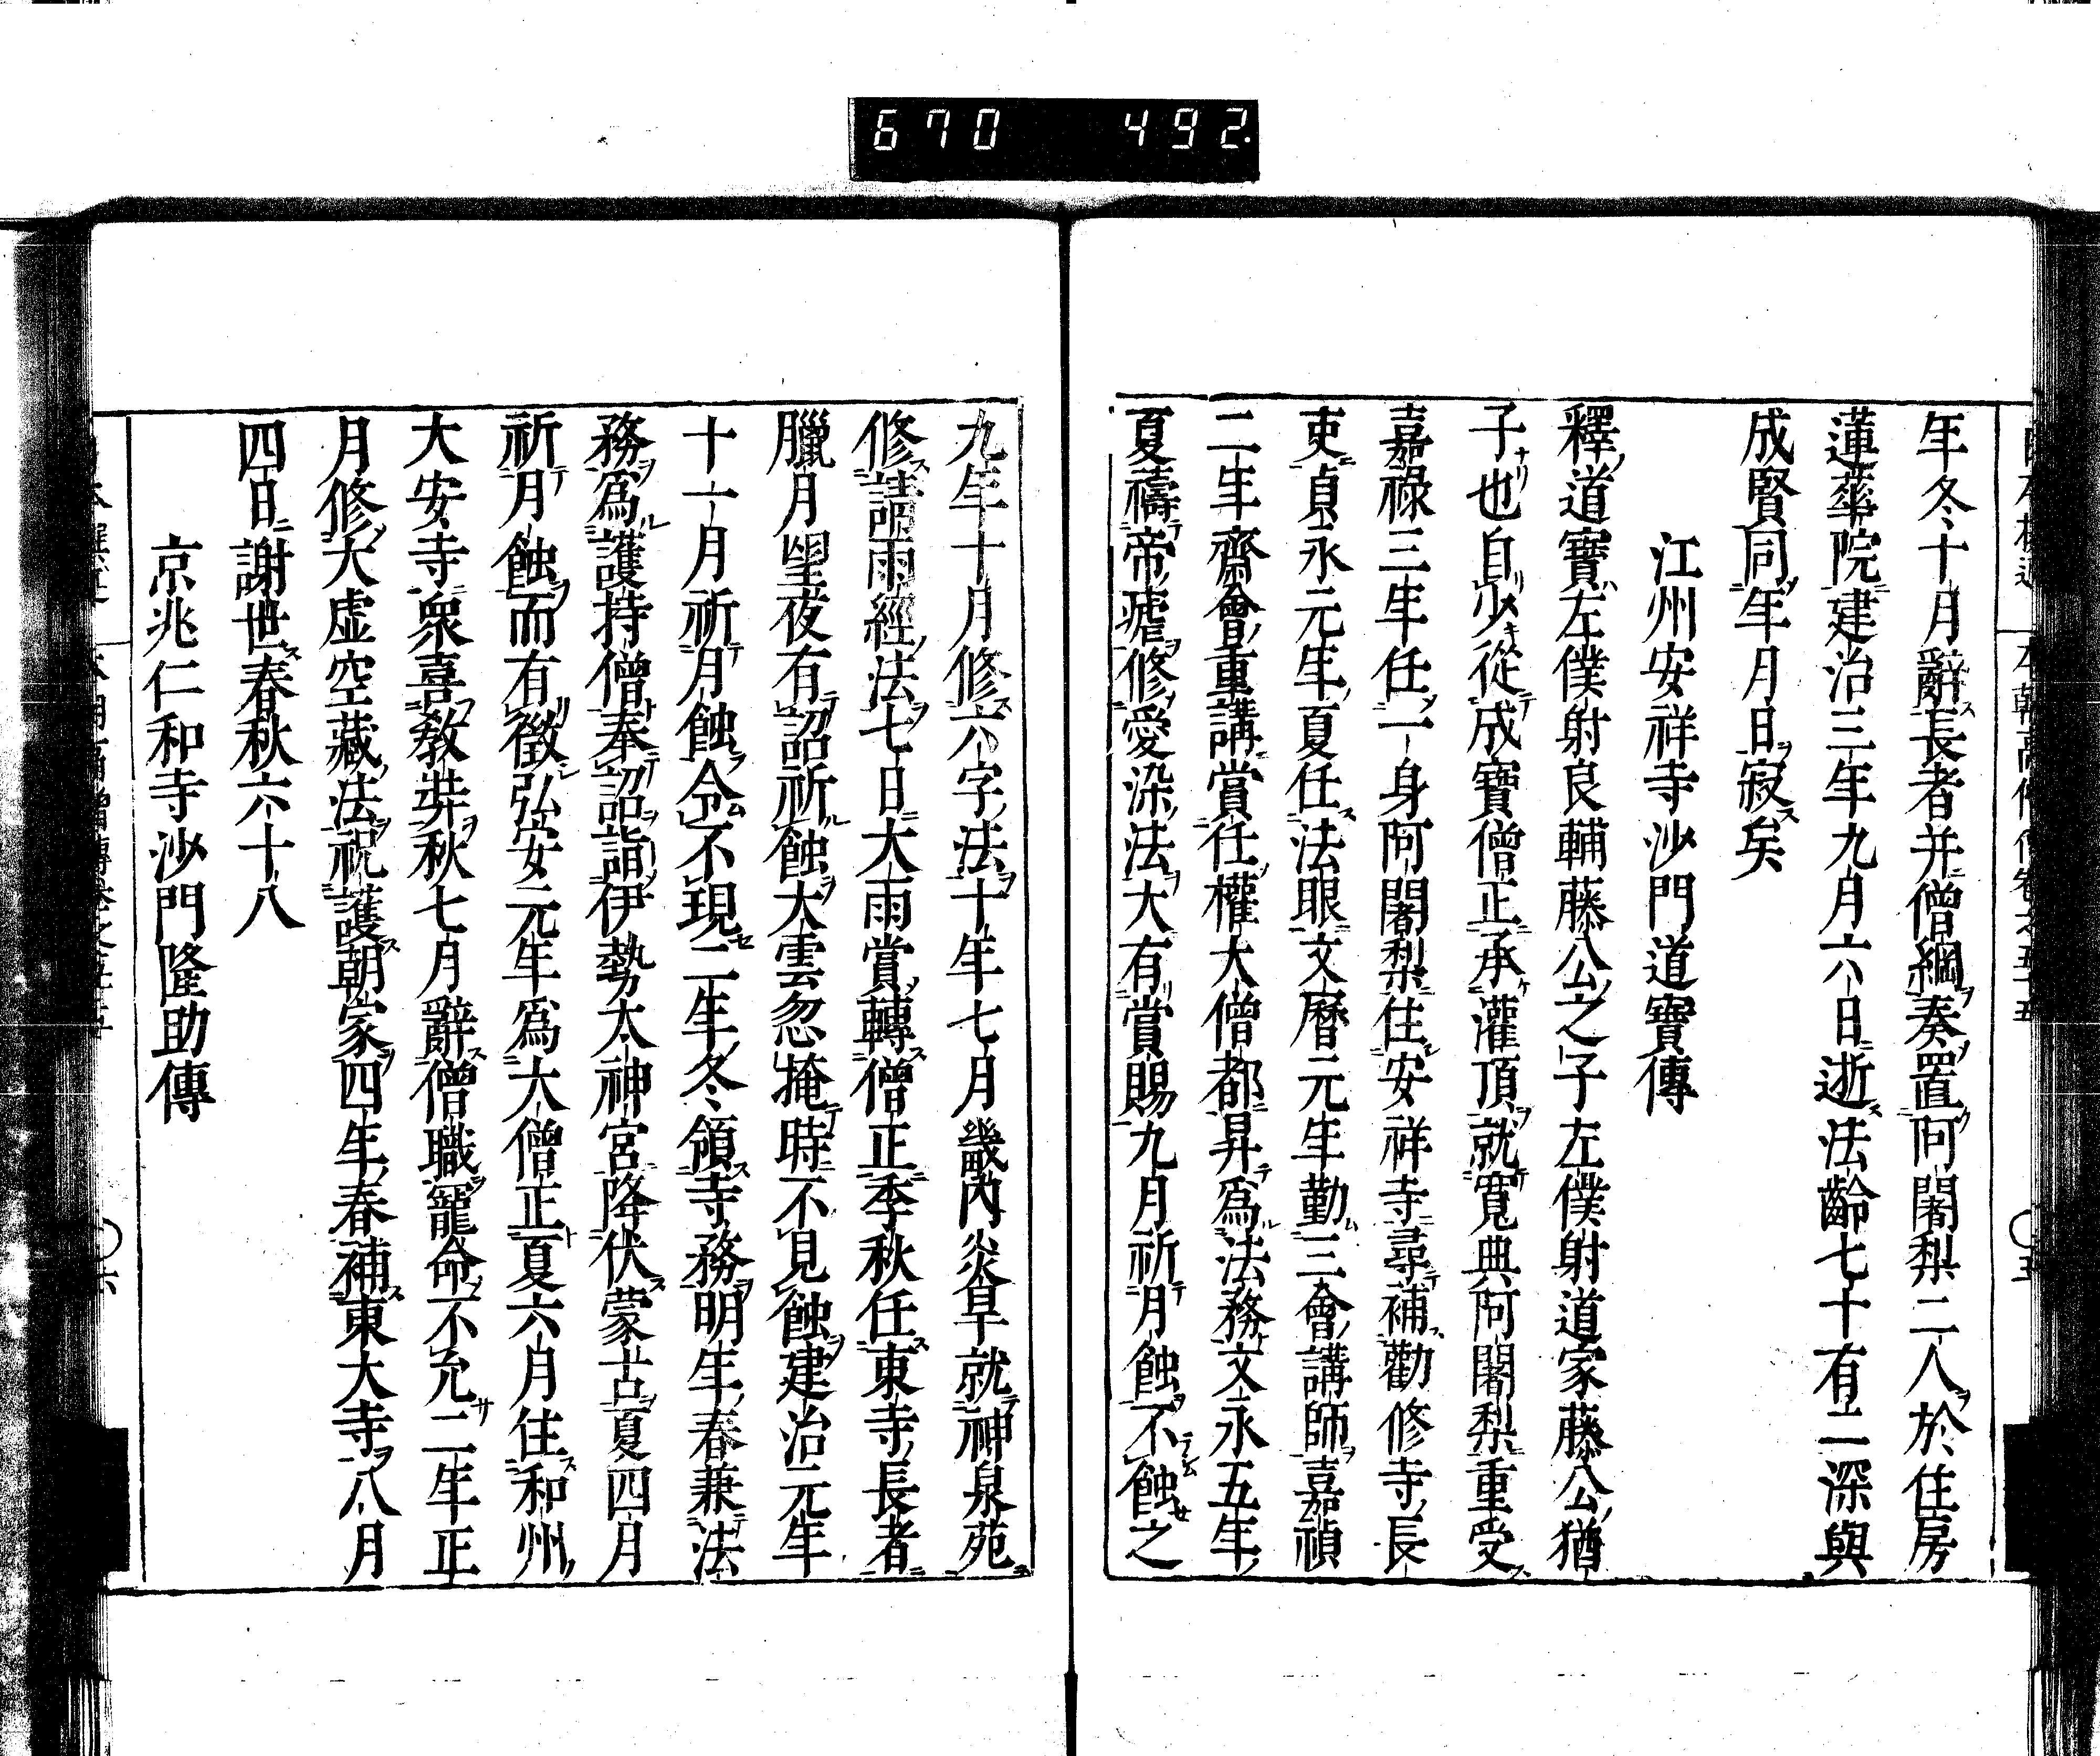 670 492
年冬十月辭長者并僧綱奏置阿闍梨二人於住房
蓮華院建治三年九月六日逝法齡七十有二深與
成賢同年月日寂矣
江州安祥寺沙門道寶傳
釋道寶左僕射良輔藤公之子左僕射道家藤公猶
子也自少從成寶僧正承灌頂就寬典阿闍梨重受
嘉祿三年任一身阿闍梨住安祥寺尋補勸修寺長
吏貞永元年夏任法眼文曆元年勤三會講師嘉禎
二年齋會重講賞任權大僧都昇為法務文永五年
夏禱帝瘧修愛染法大有賞賜九月祈月蝕不蝕之
九年十月修六字法十年七月畿內炎旱就神泉苑
修請雨經法七日大雨賞轉僧正季秋任東寺長者
臘月望夜有詔祈蝕大雲忽掩時不見蝕建治元年
十一月祈月蝕令不現二年冬領寺務明年春兼法
務為護持僧奉詔詣伊勢大神宮降伏蒙古夏四月
祈月蝕而有徵弘安元年為大僧正夏六月住和州
大安寺衆喜教弉秋七月辭僧職寵命不允二年正
月修大虛空藏法祝護朝家四年春補東大寺八月
四日謝世春秋六十八
京兆仁和寺沙門隆助傳